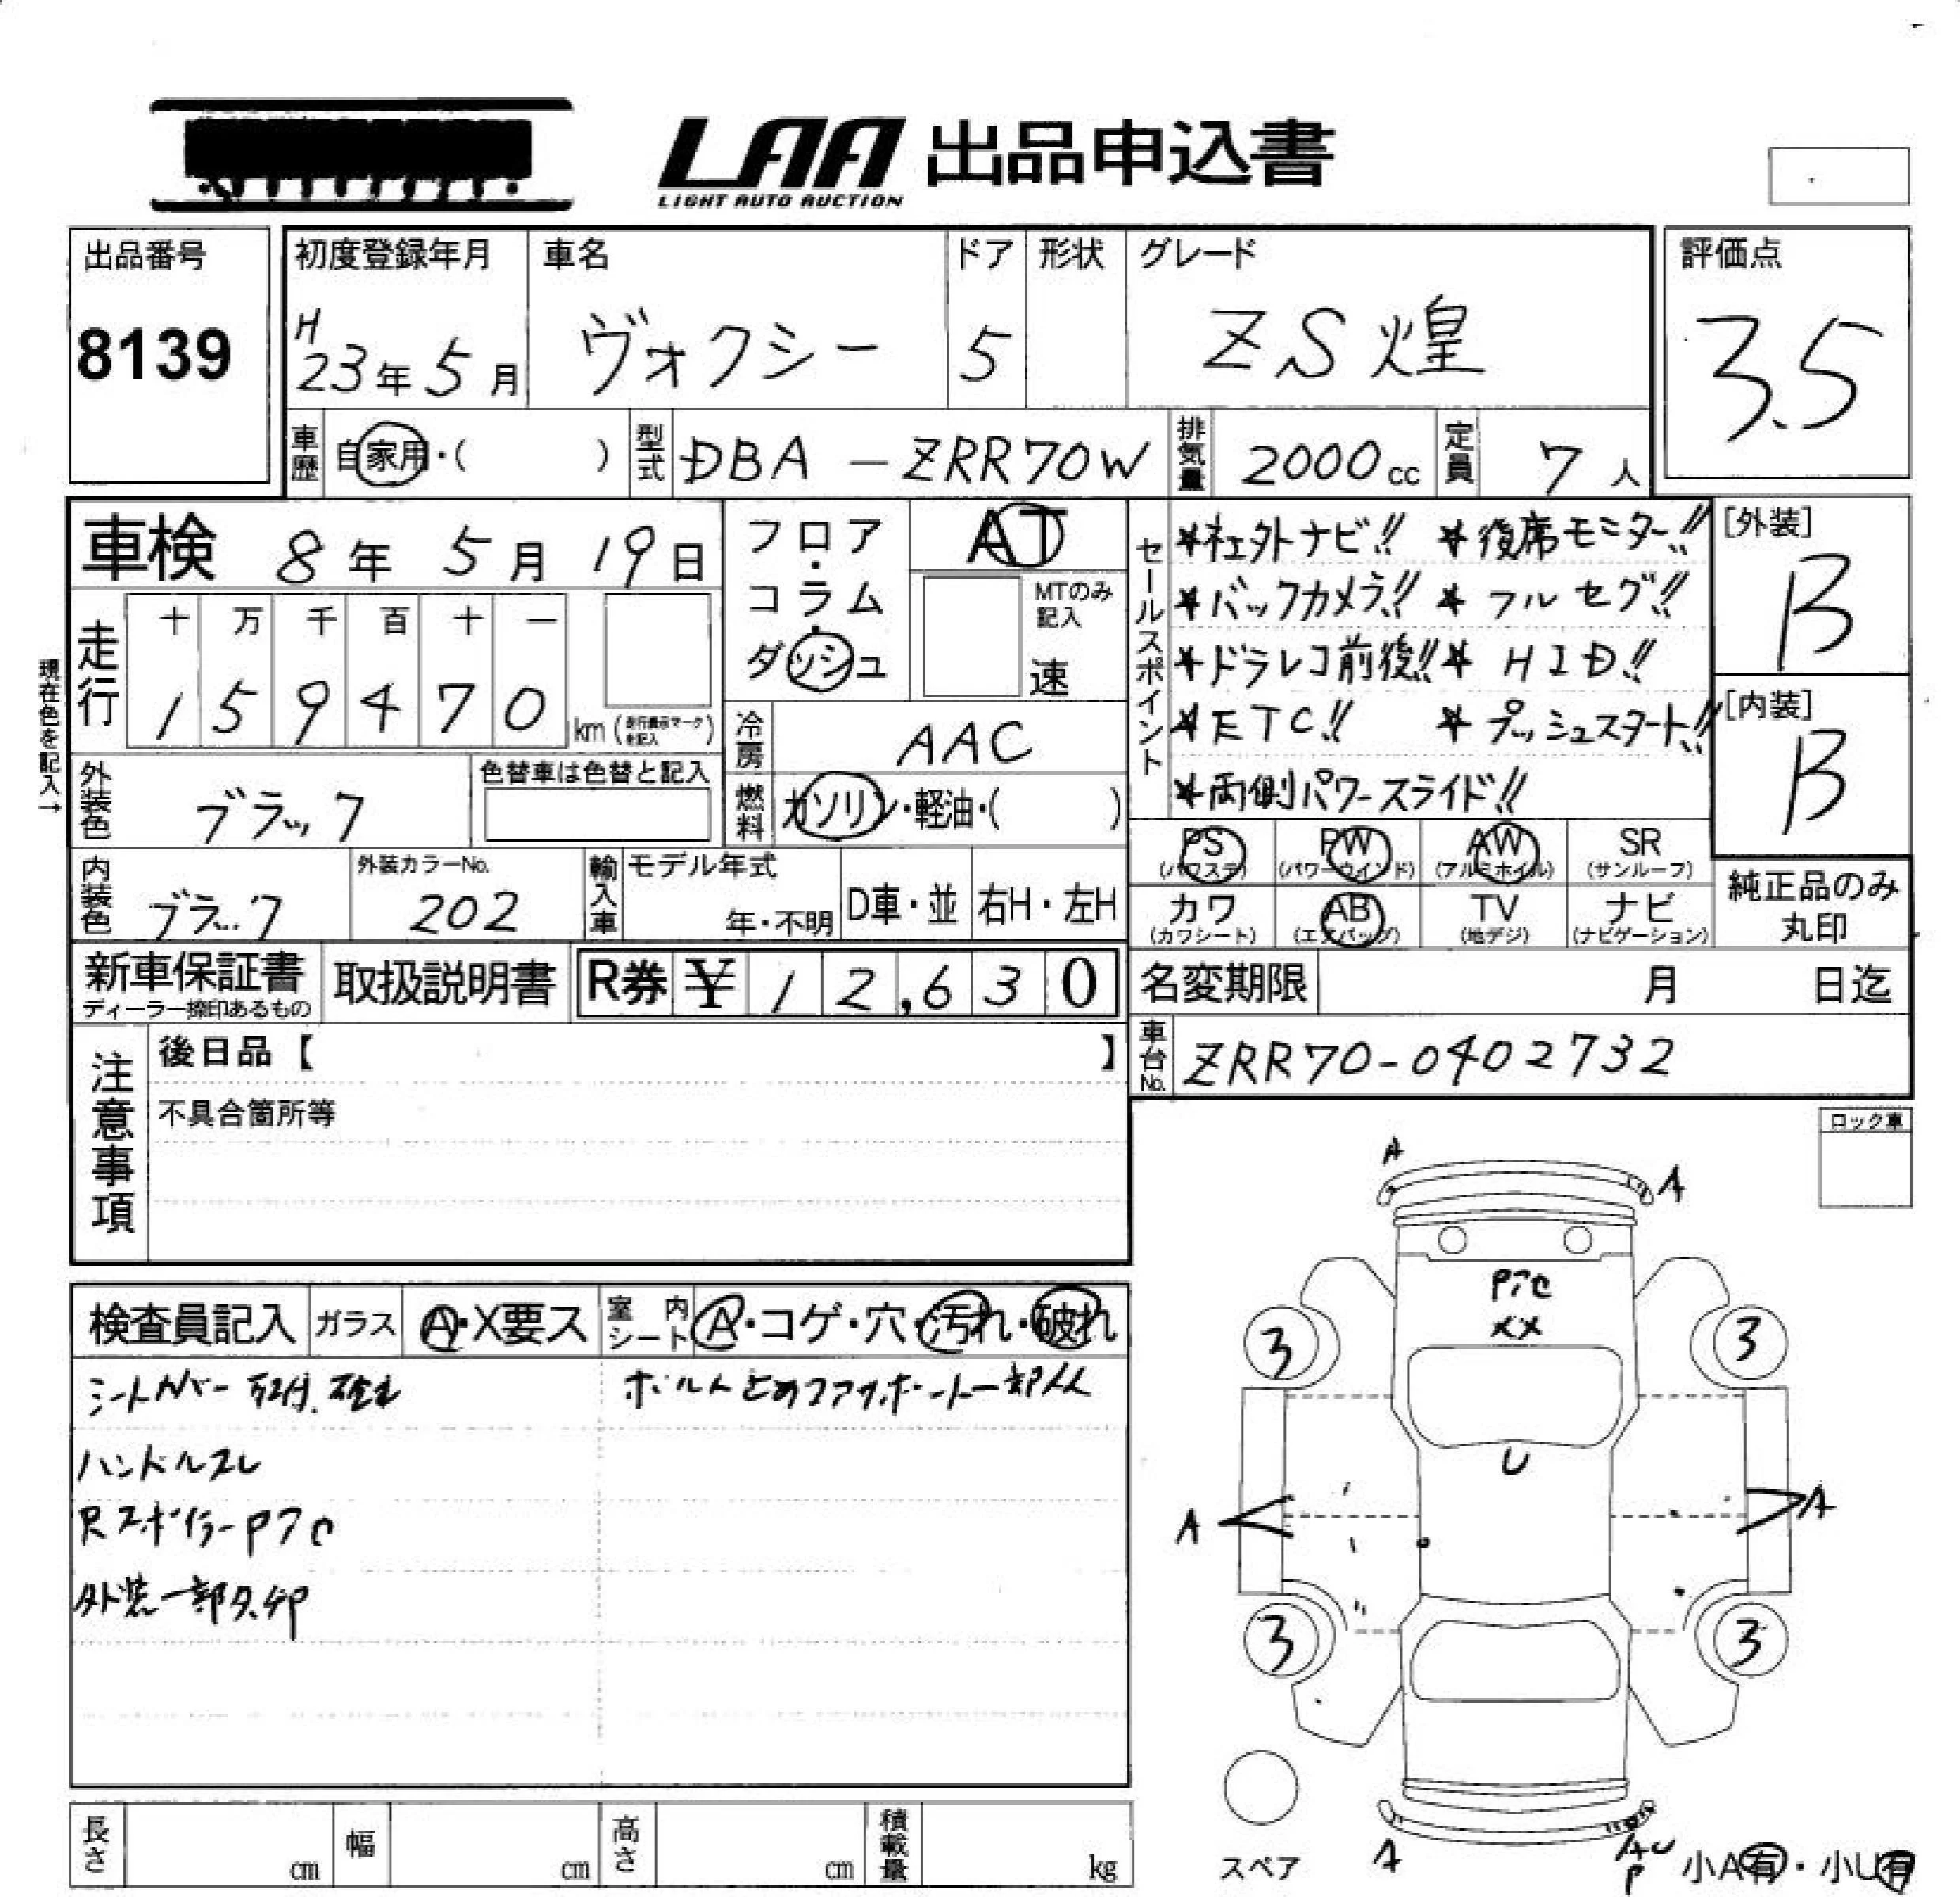 LAA 出品申込書
LIGHT AUTO AUCTION
出品番号
8139
初度登録年月
H
23年 5月
車名
ヴォクシー
ドア
5
形状
グレード
ZS煌
評価点
3.5
車歴
自家用・( )
型式
DBA - ZRR70W
排気量
2000cc
定員
7人
車検 8年 5月 19日
現在色を記入→
走行
十 万 千 百 十 一
1 5 9 4 7 0 km (走行表示マークを記入)
フロア・コラム・ダッシュ
AT
MTのみ記入
速
冷房
AAC
燃料
ガソリン・軽油・( )
セールスポイント
★社外ナビ!! ★後席モニター!!
★バックカメラ!! ★フルセグ!!
★ドラレコ前後!! ★HID!!
★ETC!! ★プッシュスタート!!
★両側パワースライド!!
[外装]
B
[内装]
B
外装色
ブラック
色替車は色替と記入
内装色
ブラック
外装カラーNo.
202
輸入車
モデル年式
年・不明
D車・並
右H・左H
PS (パワステ)
PW (パワーウインド)
AW (アルミホイル)
SR (サンルーフ)
カワ (カワシート)
AB (エアバッグ)
TV (地デジ)
ナビ (ナビゲーション)
純正品のみ
丸印
新車保証書
ディーラー捺印あるもの
取扱説明書
R券 ¥ 12,630
名変期限 月 日迄
車台No.
ZRR70-0402732
注意事項
後日品【 】
不具合箇所等
ロック車
検査員記入
ガラス
A・X要ス
室内シート
A・コゲ・穴・汚れ・破れ
シートカバー
ハンドルスレ
Rスポイラー
外装一部
A
A
XX
3
3
U
A
A
3
3
スペア
A
AU
P
小A有・小U有
長さ cm
幅 cm
高さ cm
積載量 kg